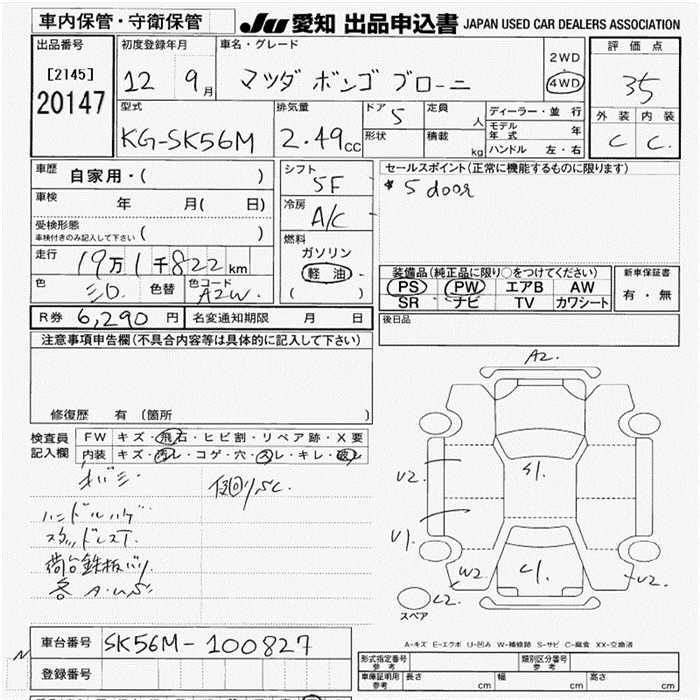 車内保管・守衛保管
JU 愛知 出品申込書 JAPAN USED CAR DEALERS ASSOCIATION
出品番号
[2145]
20147
初度登録年月
12 9月
車名・グレード
マツダ ボンゴ ブローニ
2WD
4WD
評価点
35
外装 内装
C C
型式
KG-SK56M
排気量
2.49cc
ドア 5
形状
定員 人
積載 kg
ディーラー・並行
モデル年式 年
ハンドル 左・右
車歴 自家用・( )
車検 年 月( 日)
受検形態
車検付きのみ記入して下さい ( )
走行 19万1千822km
色 色替 色コード A2W
シフト 5F
冷房 A/C
燃料
ガソリン
軽油
( )
セールスポイント(正常に機能するものに限ります)
* 5 door
装備品(純正品に限り○をつけてください)
PS PW エアB AW
SR ナビ TV カワシート
新車保証書
有・無
R券 6,290円 名変通知期限 月 日
後日品
注意事項申告欄(不具合内容等は具体的に記入して下さい)
修復歴 有(箇所 )
検査員記入欄
FW キズ・飛石・ヒビ割・リペア跡・X要
内装 キズ・汚レ・コゲ・穴・スレ・キレ・破レ
ハンドルハゲ
スタッドレスT
荷台鉄板バリ
各A.U.S
A2.
S1.
U2.
U1.
W2
C1.
U2.
C2.
スペア
A-キズ E-エクボ U-凹み W-補修跡 S-サビ C-腐食 XX-交換済
車台番号 SK56M-100827
登録番号
形式指定番号 参考
類別区分番号 参考
車庫証明用 参考 長さ cm 幅 cm 高さ cm